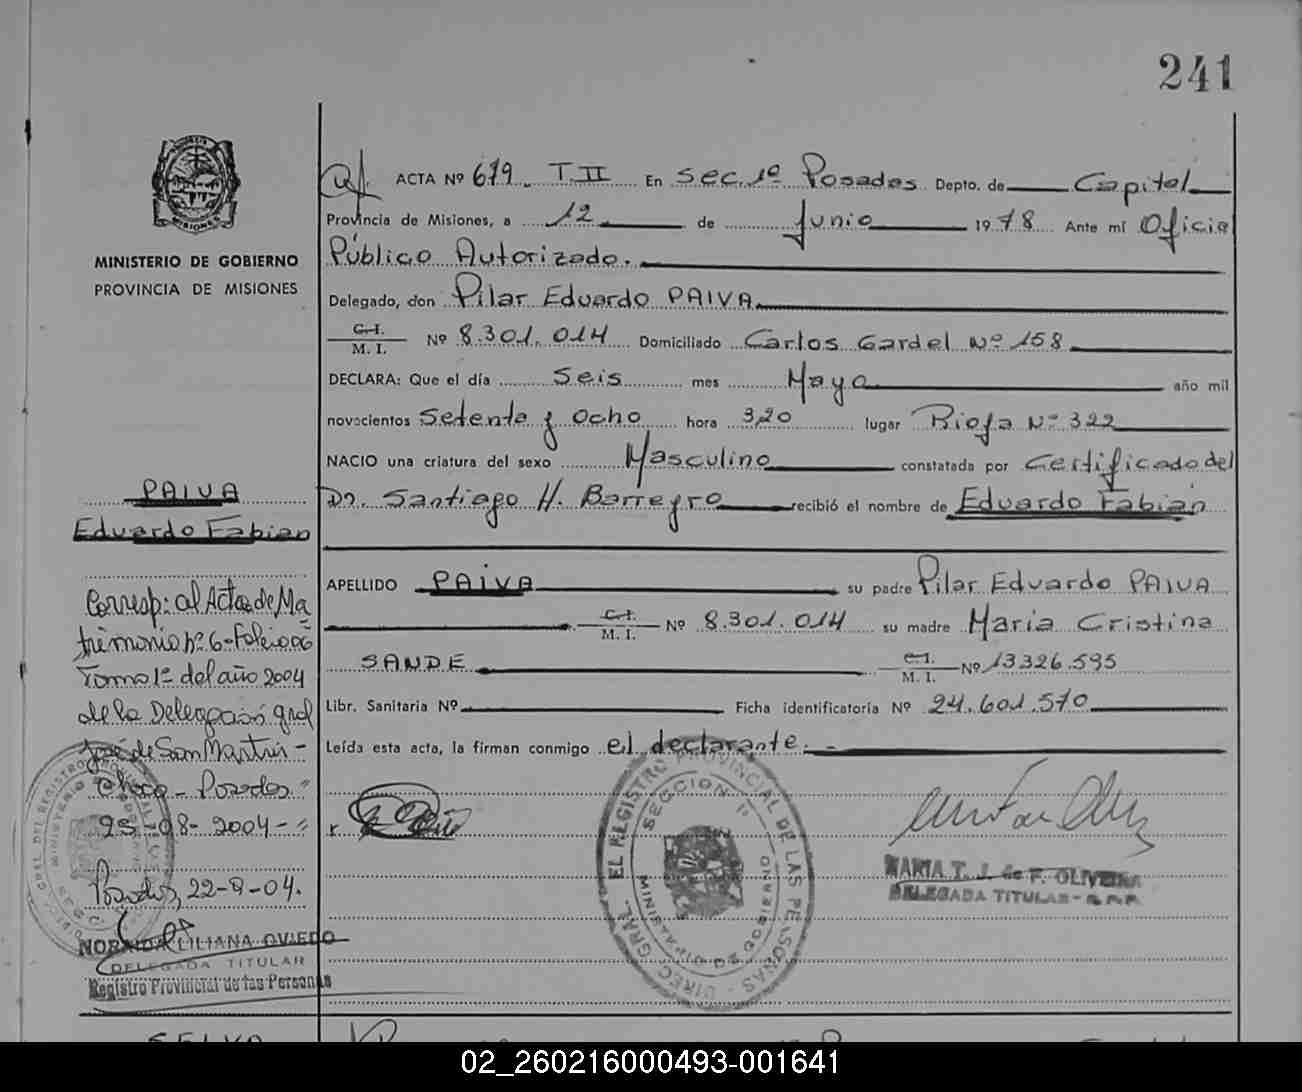 241
ACTA Nº 619 T.II En Sec. 1º Posadas Depto. de Capital
Provincia de Misiones, a 12 de Junio 1978 Ante mí Oficial
Público Autorizado.
Delegado, don Pilar Eduardo PAIVA
C.I. M. I. Nº 8.301.014 Domiciliado Carlos Gardel Nº 158
DECLARA: Que el día Seis mes Mayo año mil
novecientos Setenta y Ocho hora 3,20 lugar Rioja Nº 322
NACIO una criatura del sexo Masculino constatada por Certificado del
Dr. Santiago H. Barreyro recibió el nombre de Eduardo Fabian
APELLIDO PAIVA su padre Pilar Eduardo PAIVA
C.I. M. I. Nº 8.301.014 su madre Maria Cristina
SANDE C.I. M. I. Nº 13326.595
Libr. Sanitaria Nº Ficha identificatoria Nº 24.601.570
Leída esta acta, la firman conmigo el declarante.
MARIA T. J. de F. OLIVEIRA
DELEGADA TITULAR - R.P.P.
EL REGISTRO PROVINCIAL DE LAS PERSONAS - DIREC. GRAL.
SECCION 1ª
MISIONES
MINISTERIO DE GOBIERNO
PROVINCIA DE MISIONES
PAIVA
Eduardo Fabian
Corresp: al Acta de Ma
trimonio Nº 6-Folio 006
Tomo 1º del año 2004
de la Delegación gral
José de San Martín -
Chaco - Posadas"
25-08-2004-"
Posadas, 22-9-04.
NORAIDA LILIANA OVIEDO
DELEGADA TITULAR
Registro Provincial de las Personas
02_260216000493-001641